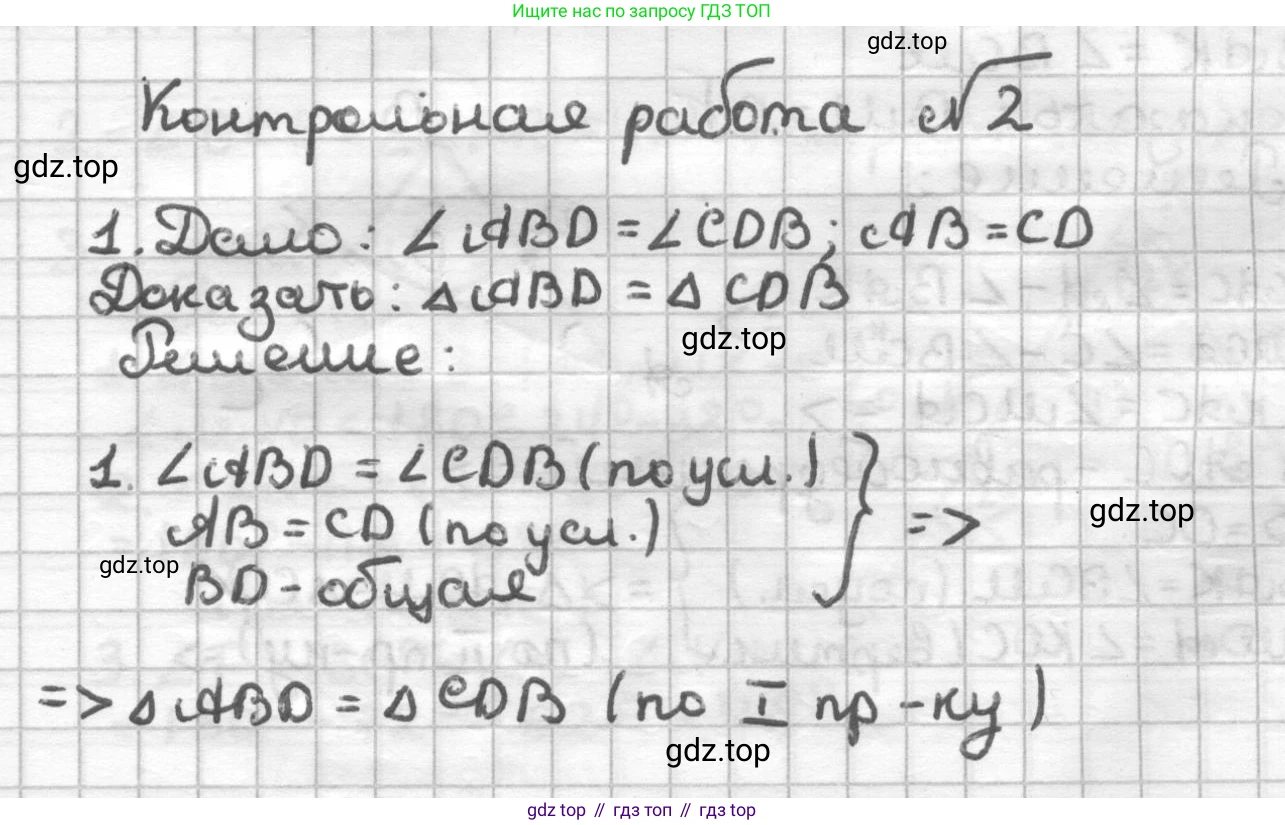 Ищите нас по запросу ГДЗ ТОП
gdz.top
Контрольная работа №2
gdz.top
1. Дано: ∠ABD = ∠CDB; AB = CD
Доказать: △ABD = △CDB
gdz.top
Решение:
1. ∠ABD = ∠CDB (по усл.)
AB = CD (по усл.) } =>
gdz.top
gdz.top
BD - общая
=> △ABD = △CDB (по I пр-ку)
gdz.top
gdz top // гдз топ // гдз top